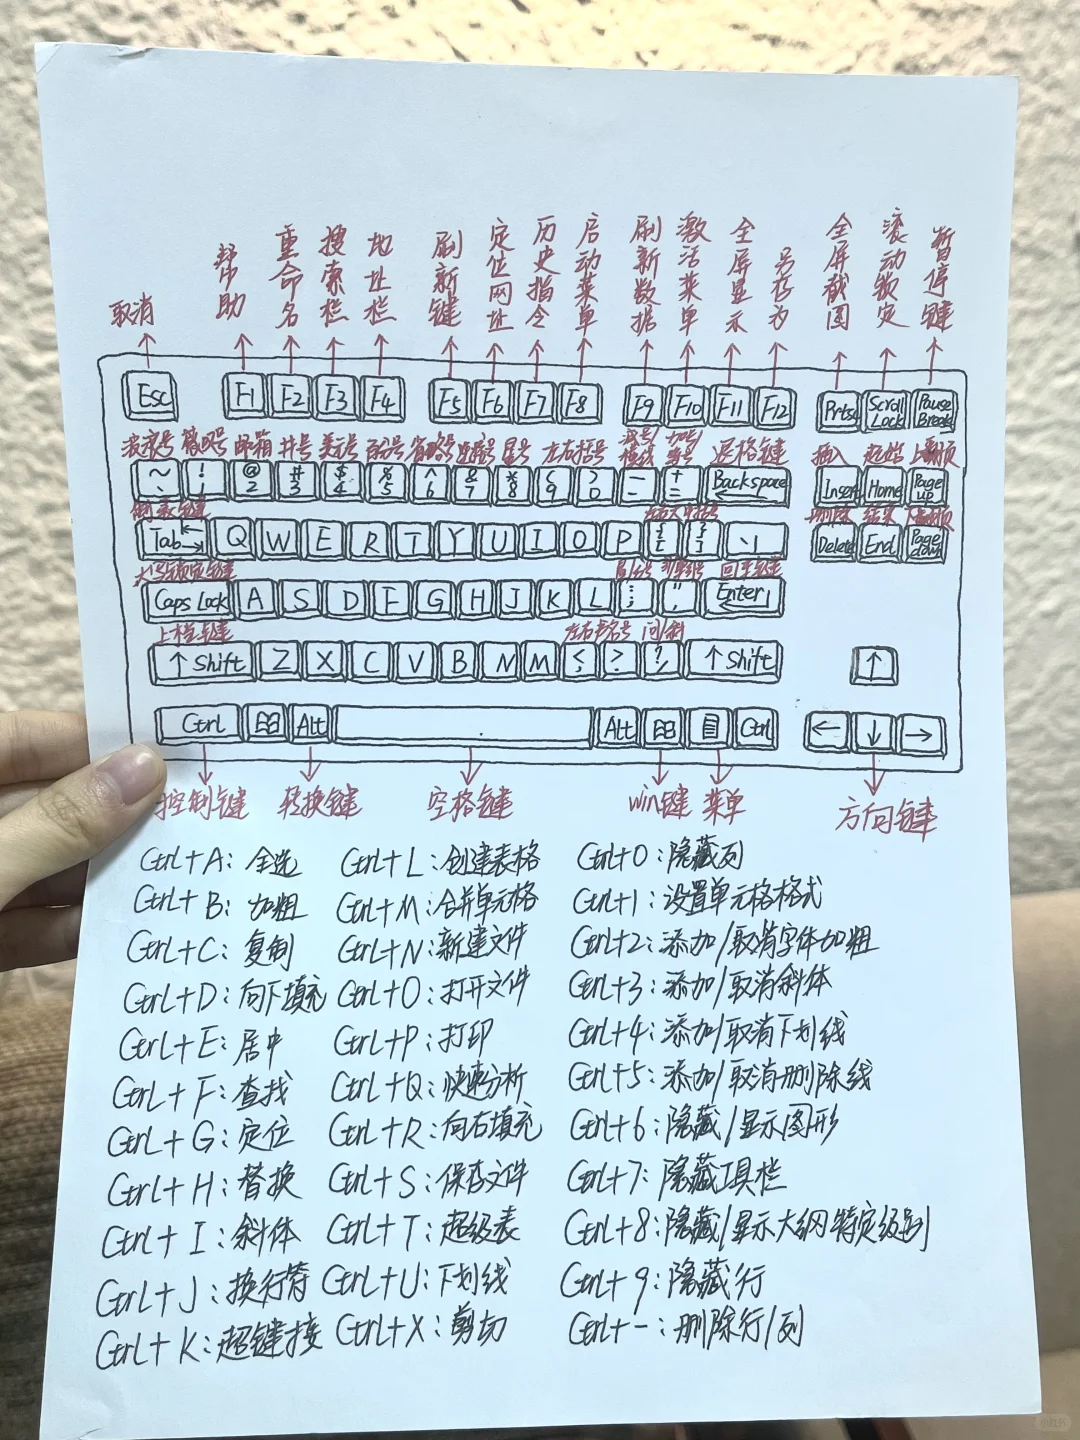 取消 帮助 重命名 搜索栏 地址栏 刷新键 定位网址 历史指令 启动菜单 刷新数据 激活菜单 全屏显示 另存为 全屏截图 滚动锁定 暂停键
Esc F1 F2 F3 F4 F5 F6 F7 F8 F9 F10 F11 F12 Prtsc Scroll Lock Pause Break
波浪号 感叹号 邮箱 井号 美元号 百分号 省略号 连接号 星号 左右括号 减号/横线 加号/等号 退格键 插入 起始 上翻页
~ 、 ! @ 2 # 3 $ 4 % 5 ^ 6 & 7 * 8 ( 9 ) 0 — - + = Backspace Insert Home Page up
制表键 左右大中括号 删除 结束 下翻页
Tab Q W E R T Y U I O P { [ } ] 、 | Delete End Page down
大写锁定键 冒/分号 引号 回车键
Caps Lock A S D F G H J K L : ; " , Enter
上档键 左右书名号 问/斜
↑ Shift Z X C V B N M < , ? . ? / ↑ Shift ↑
Ctrl Alt Alt Ctrl ← ↓ →
控制键 转换键 空格键 Win键 菜单 方向键
Ctrl+A:全选 Ctrl+L:创建表格 Ctrl+0:隐藏列
Ctrl+B:加粗 Ctrl+M:合并单元格 Ctrl+1:设置单元格格式
Ctrl+C:复制 Ctrl+N:新建文件 Ctrl+2:添加/取消字体加粗
Ctrl+D:向下填充 Ctrl+O:打开文件 Ctrl+3:添加/取消斜体
Ctrl+E:居中 Ctrl+P:打印 Ctrl+4:添加/取消下划线
Ctrl+F:查找 Ctrl+Q:快速分析 Ctrl+5:添加/取消删除线
Ctrl+G:定位 Ctrl+R:向右填充 Ctrl+6:隐藏/显示图形
Ctrl+H:替换 Ctrl+S:保存文件 Ctrl+7:隐藏工具栏
Ctrl+I:斜体 Ctrl+T:超级表 Ctrl+8:隐藏/显示大纲特定级别
Ctrl+J:换行符 Ctrl+U:下划线 Ctrl+9:隐藏行
Ctrl+K:超键接 Ctrl+X:剪切 Ctrl+-:删除行/列
小红书